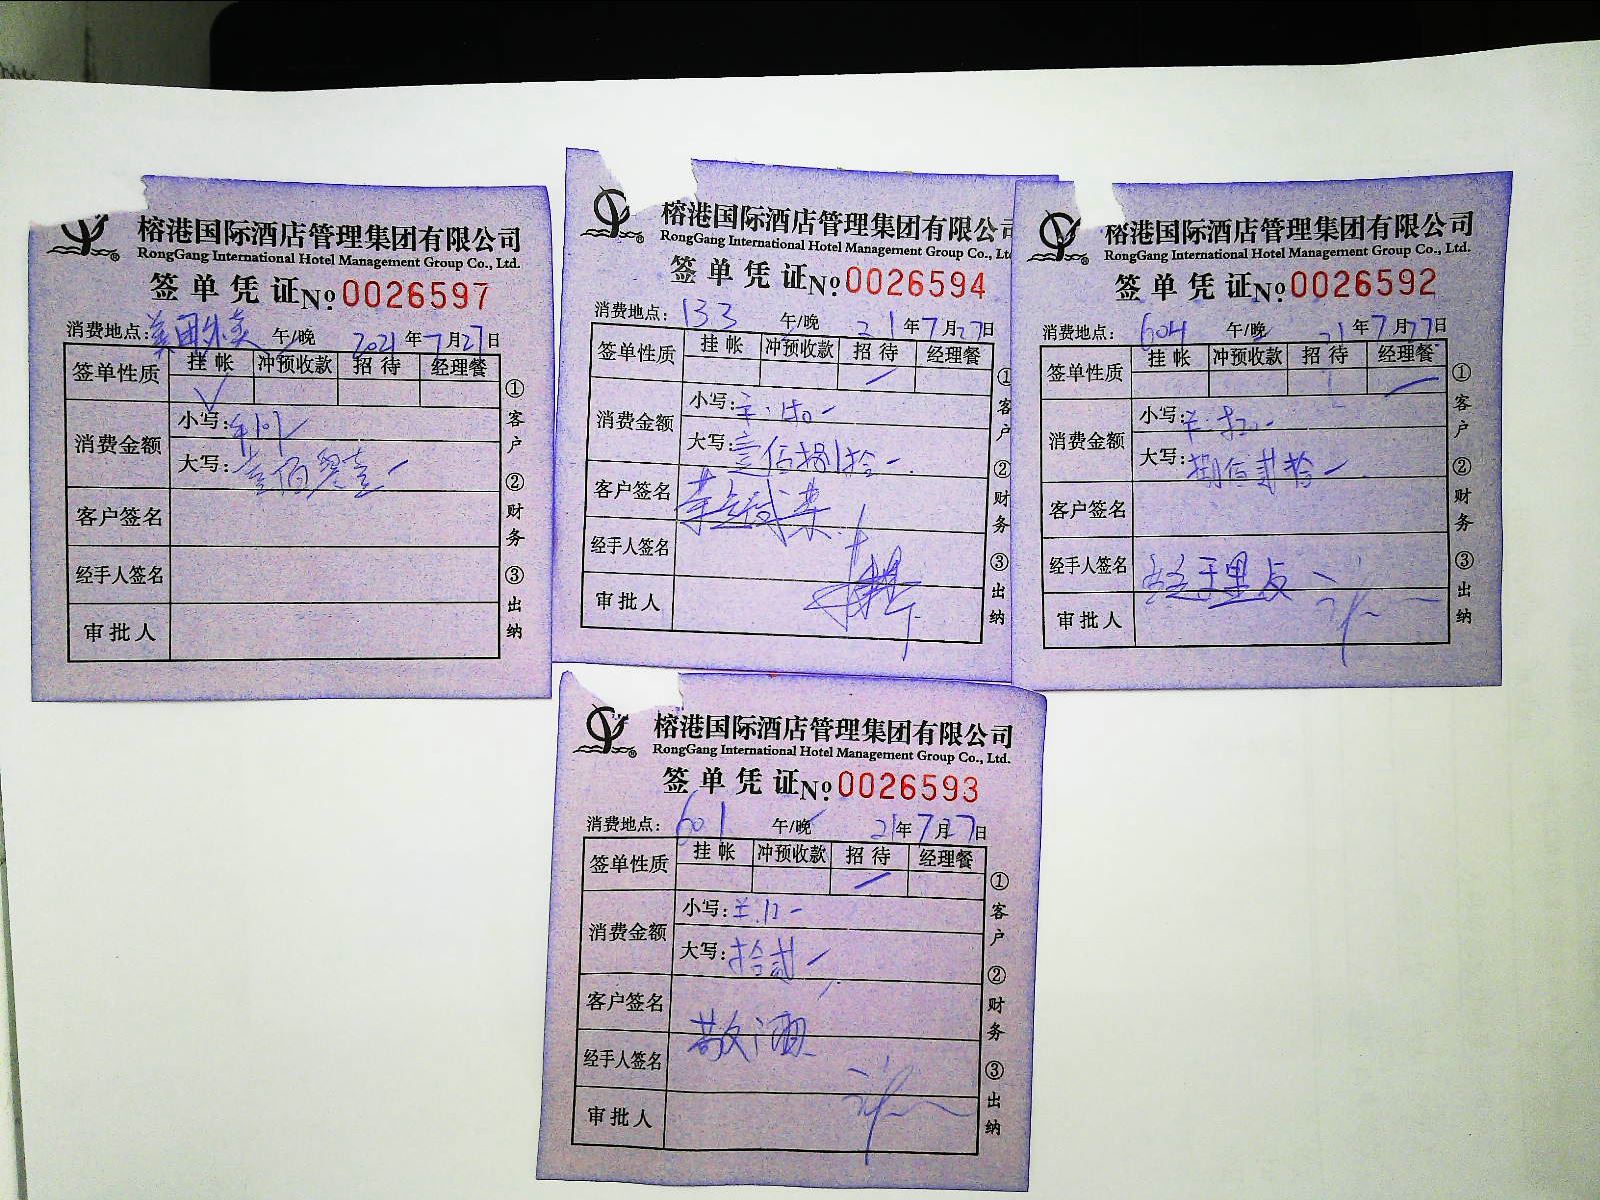 榕港国际酒店管理集团有限公司
RongGang International Hotel Management Group Co., Ltd.
签单凭证 No 0026597
消费地点: 美团外卖 午/晚 2021年7月27日
签单性质 挂帐 冲预收款 招待 经理餐
消费金额 小写:
大写: 壹佰零壹
客户签名
经手人签名
审批人
①客户 ②财务 ③出纳
榕港国际酒店管理集团有限公司
RongGang International Hotel Management Group Co., Ltd.
签单凭证 No 0026594
消费地点: 133 午/晚 21年7月27日
签单性质 挂帐 冲预收款 招待 经理餐
消费金额 小写:
大写: 壹佰捌拾
客户签名
经手人签名
审批人
①客户 ②财务 ③出纳
榕港国际酒店管理集团有限公司
RongGang International Hotel Management Group Co., Ltd.
签单凭证 No 0026592
消费地点: 604 午/晚 21年7月27日
签单性质 挂帐 冲预收款 招待 经理餐
消费金额 小写:
大写: 捌佰贰拾
客户签名
经手人签名
审批人
①客户 ②财务 ③出纳
榕港国际酒店管理集团有限公司
RongGang International Hotel Management Group Co., Ltd.
签单凭证 No 0026593
消费地点: 601 午/晚 21年7月27日
签单性质 挂帐 冲预收款 招待 经理餐
消费金额 小写: 12
大写: 拾贰
客户签名
敬酒
经手人签名
审批人
①客户 ②财务 ③出纳